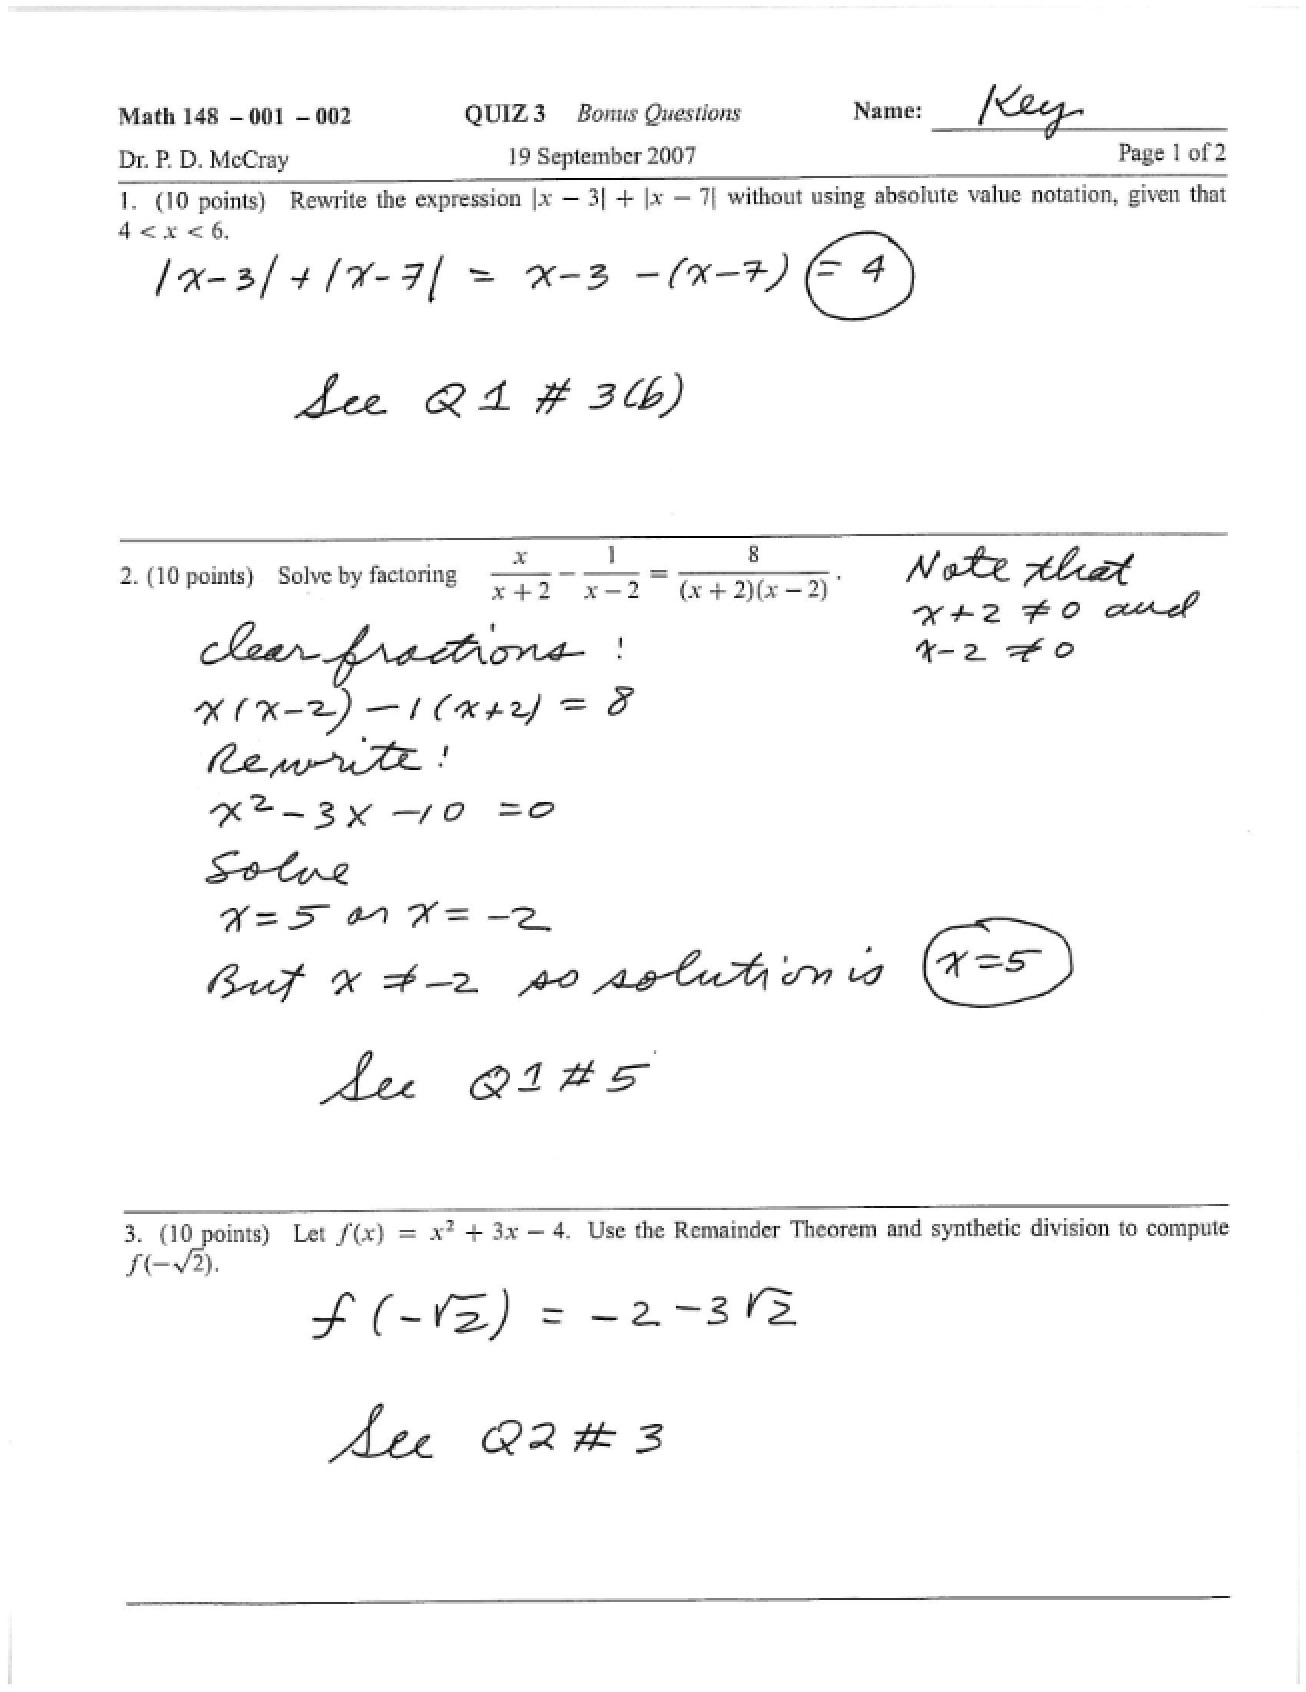 Math 148 – 001 – 002 QUIZ 3 Bonus Questions Name: Key
Dr. P. D. McCray 19 September 2007 Page 1 of 2
1. (10 points) Rewrite the expression |x − 3| + |x − 7| without using absolute value notation, given that
4 < x < 6.
|x-3| + |x-7| = x-3 -(x-7) = 4
See Q1 # 3(b)
2. (10 points) Solve by factoring x/(x + 2) − 1/(x − 2) = 8/((x + 2)(x − 2)).
Note that
x+2 ≠ 0 and
x-2 ≠ 0
clear fractions!
x(x-2) -1(x+2) = 8
Rewrite!
x² - 3x -10 = 0
Solve
x=5 or x= -2
But x ≠ -2 so solution is x=5
See Q1 # 5
3. (10 points) Let f(x) = x² + 3x − 4. Use the Remainder Theorem and synthetic division to compute
f(−√2).
f(-√2) = -2 -3√2
See Q2 # 3